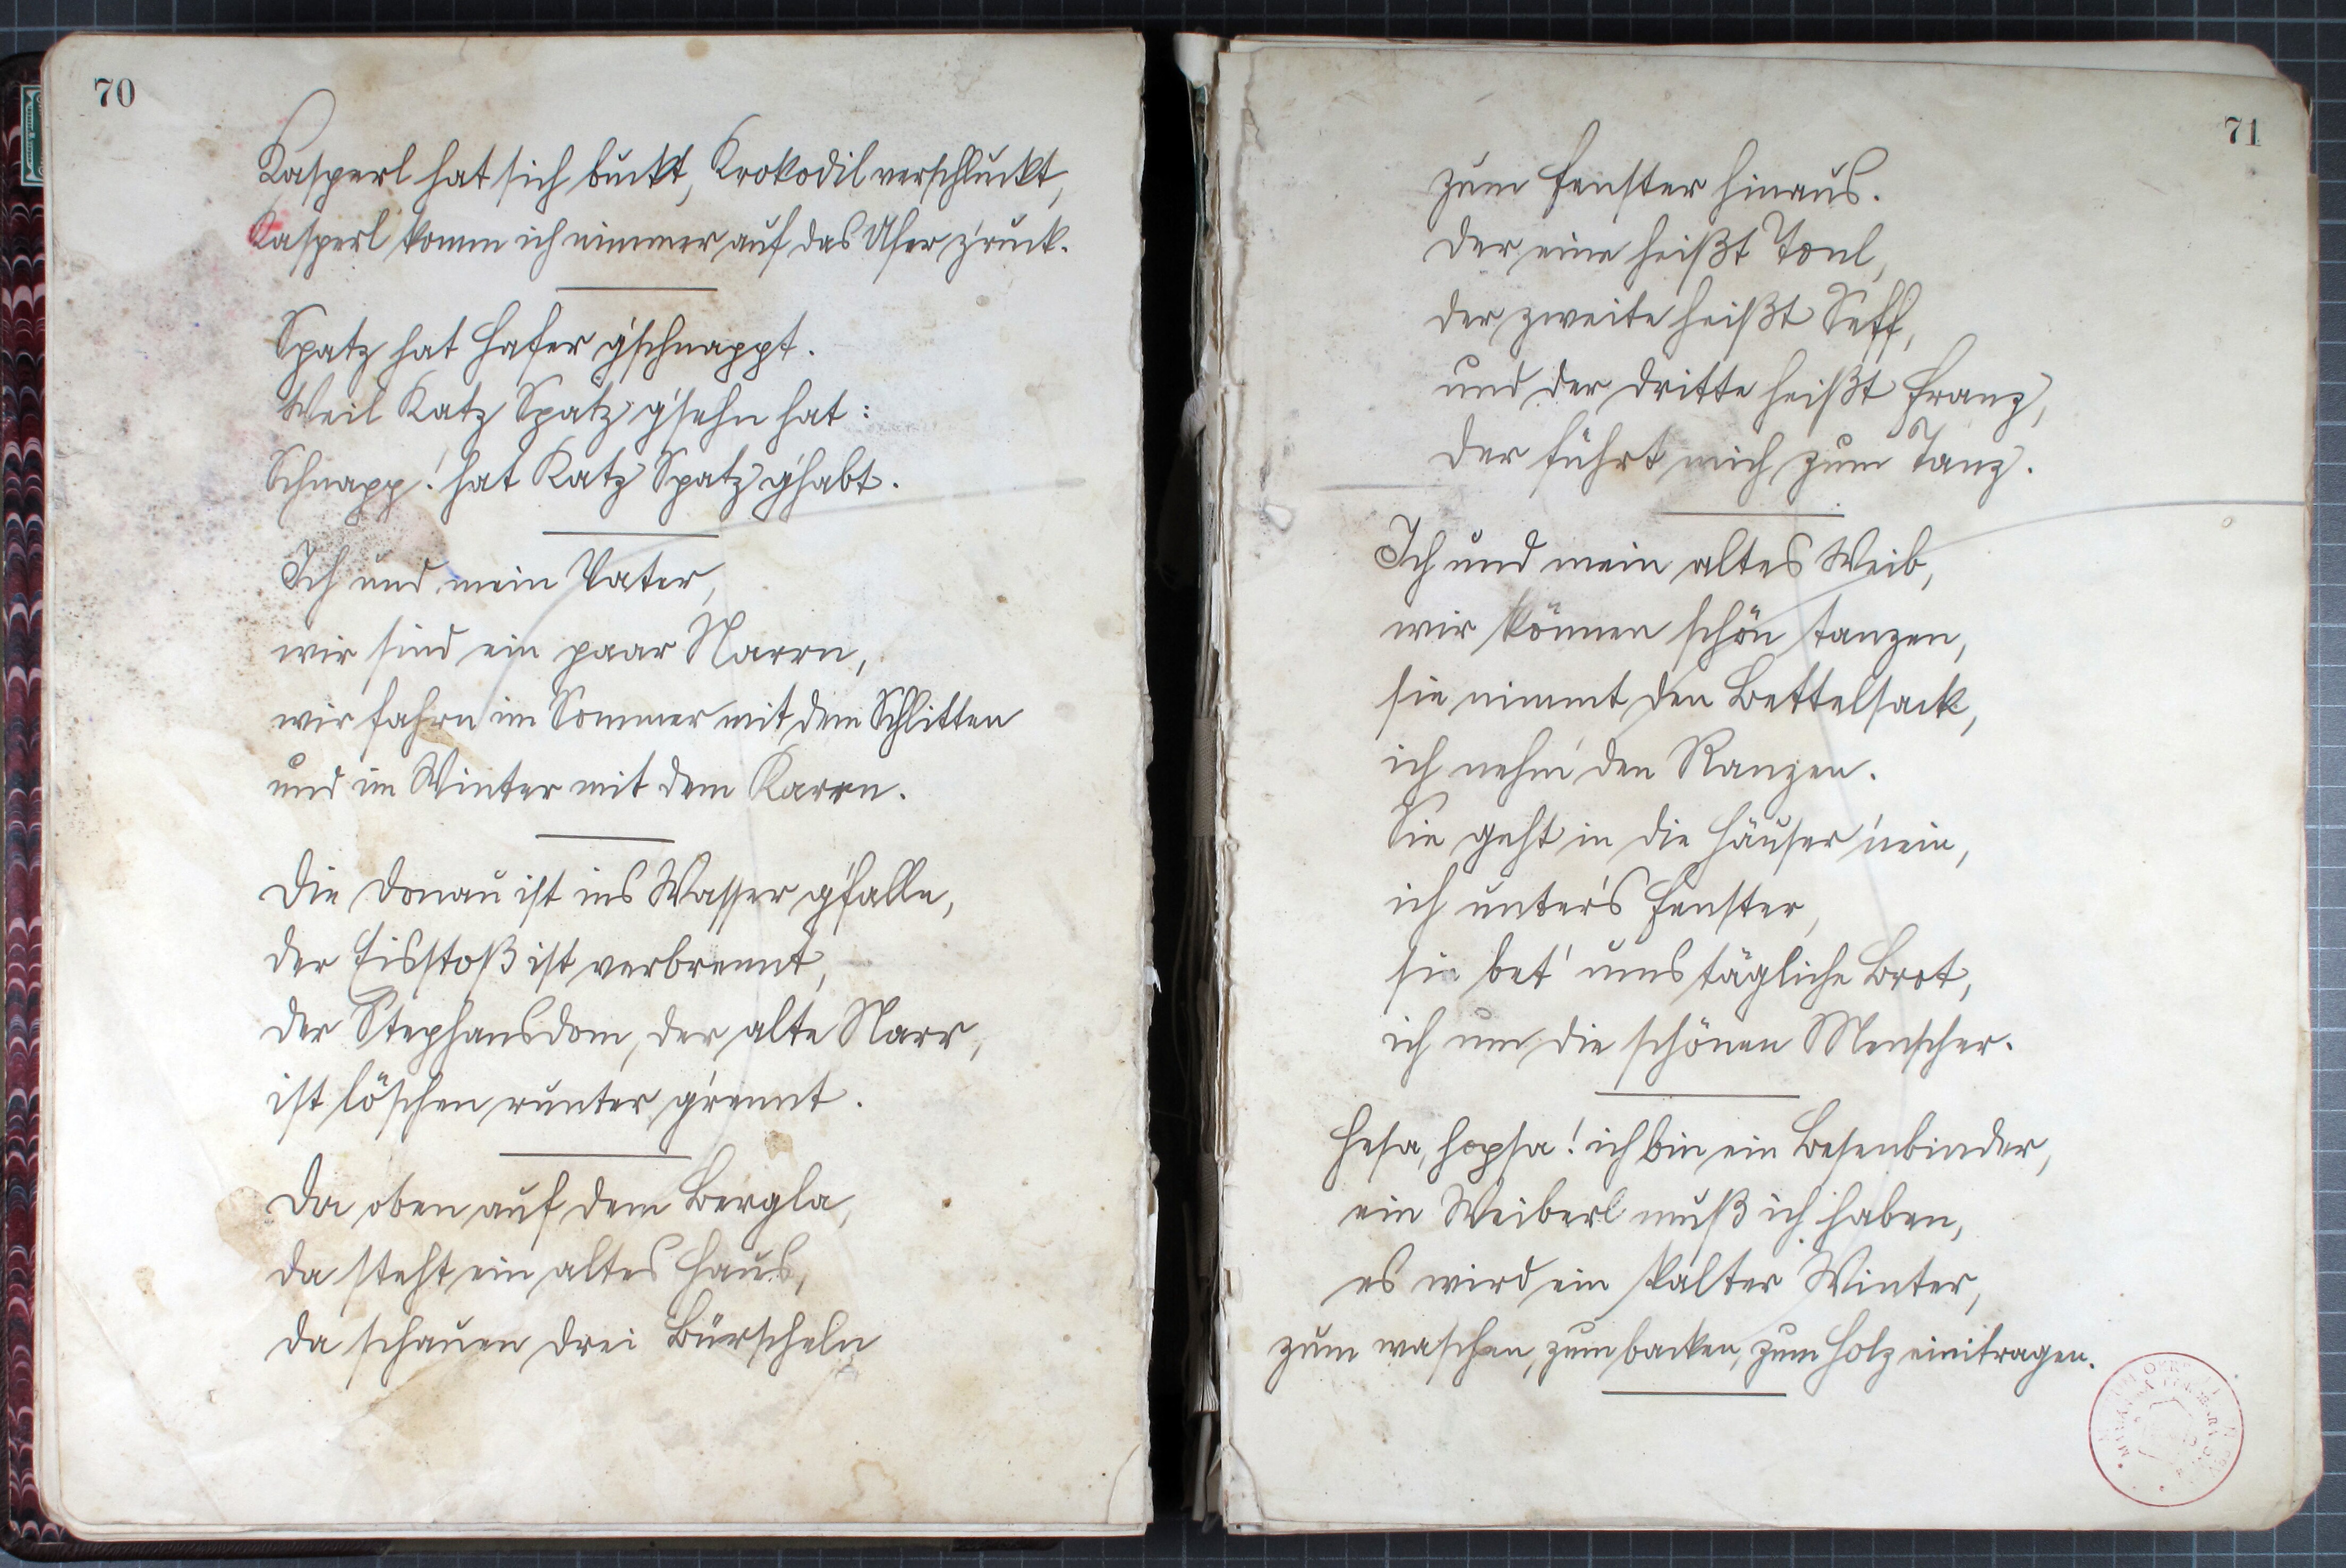 70
Kasperl hat sich buckt, Krokodil verschluckt,
Kasperl komm ich nimmer auf das Ufer z'ruck.
Spatz hat Hafer g'schnappt.
Weil Katz Spatz g'sehn hat:
Schnapp! hat Katz Spatz g'habt.
Ich und mein Vater,
wir sind ein paar Narrn,
wir fahrn im Sommer mit dem Schlitten
und im Winter mit dem Karrn.
Die Donau ist ins Wasser g'falln,
der Eisstoß ist verbrennt,
der Stephansdom, der alte Narr,
ist löschen runter g'rennt.
Da oben auf dem Bergla,
da steht ein altes Haus,
da schauen drei Bürscheln
71
zum Fenster hinaus.
Der eine heißt Tonl,
der zweite heißt Seff,
und der dritte heißt Franz,
der führt mich zum Tanz.
Ich und mein altes Weib,
wir können schön tanzen,
sie nimmt den Bettelsack,
ich nehm' den Ranzen.
Sie geht in die Häuser 'nein,
ich unter's Fenster,
sie bet' ums tägliche Brot,
ich um die schönen Menscher.
Hesa, hopsa! ich bin ein Besenbinder,
ein Weiberl muß ich haben,
es wird ein kalter Winter,
zum waschen, zum backen, zum Holz einitragen.